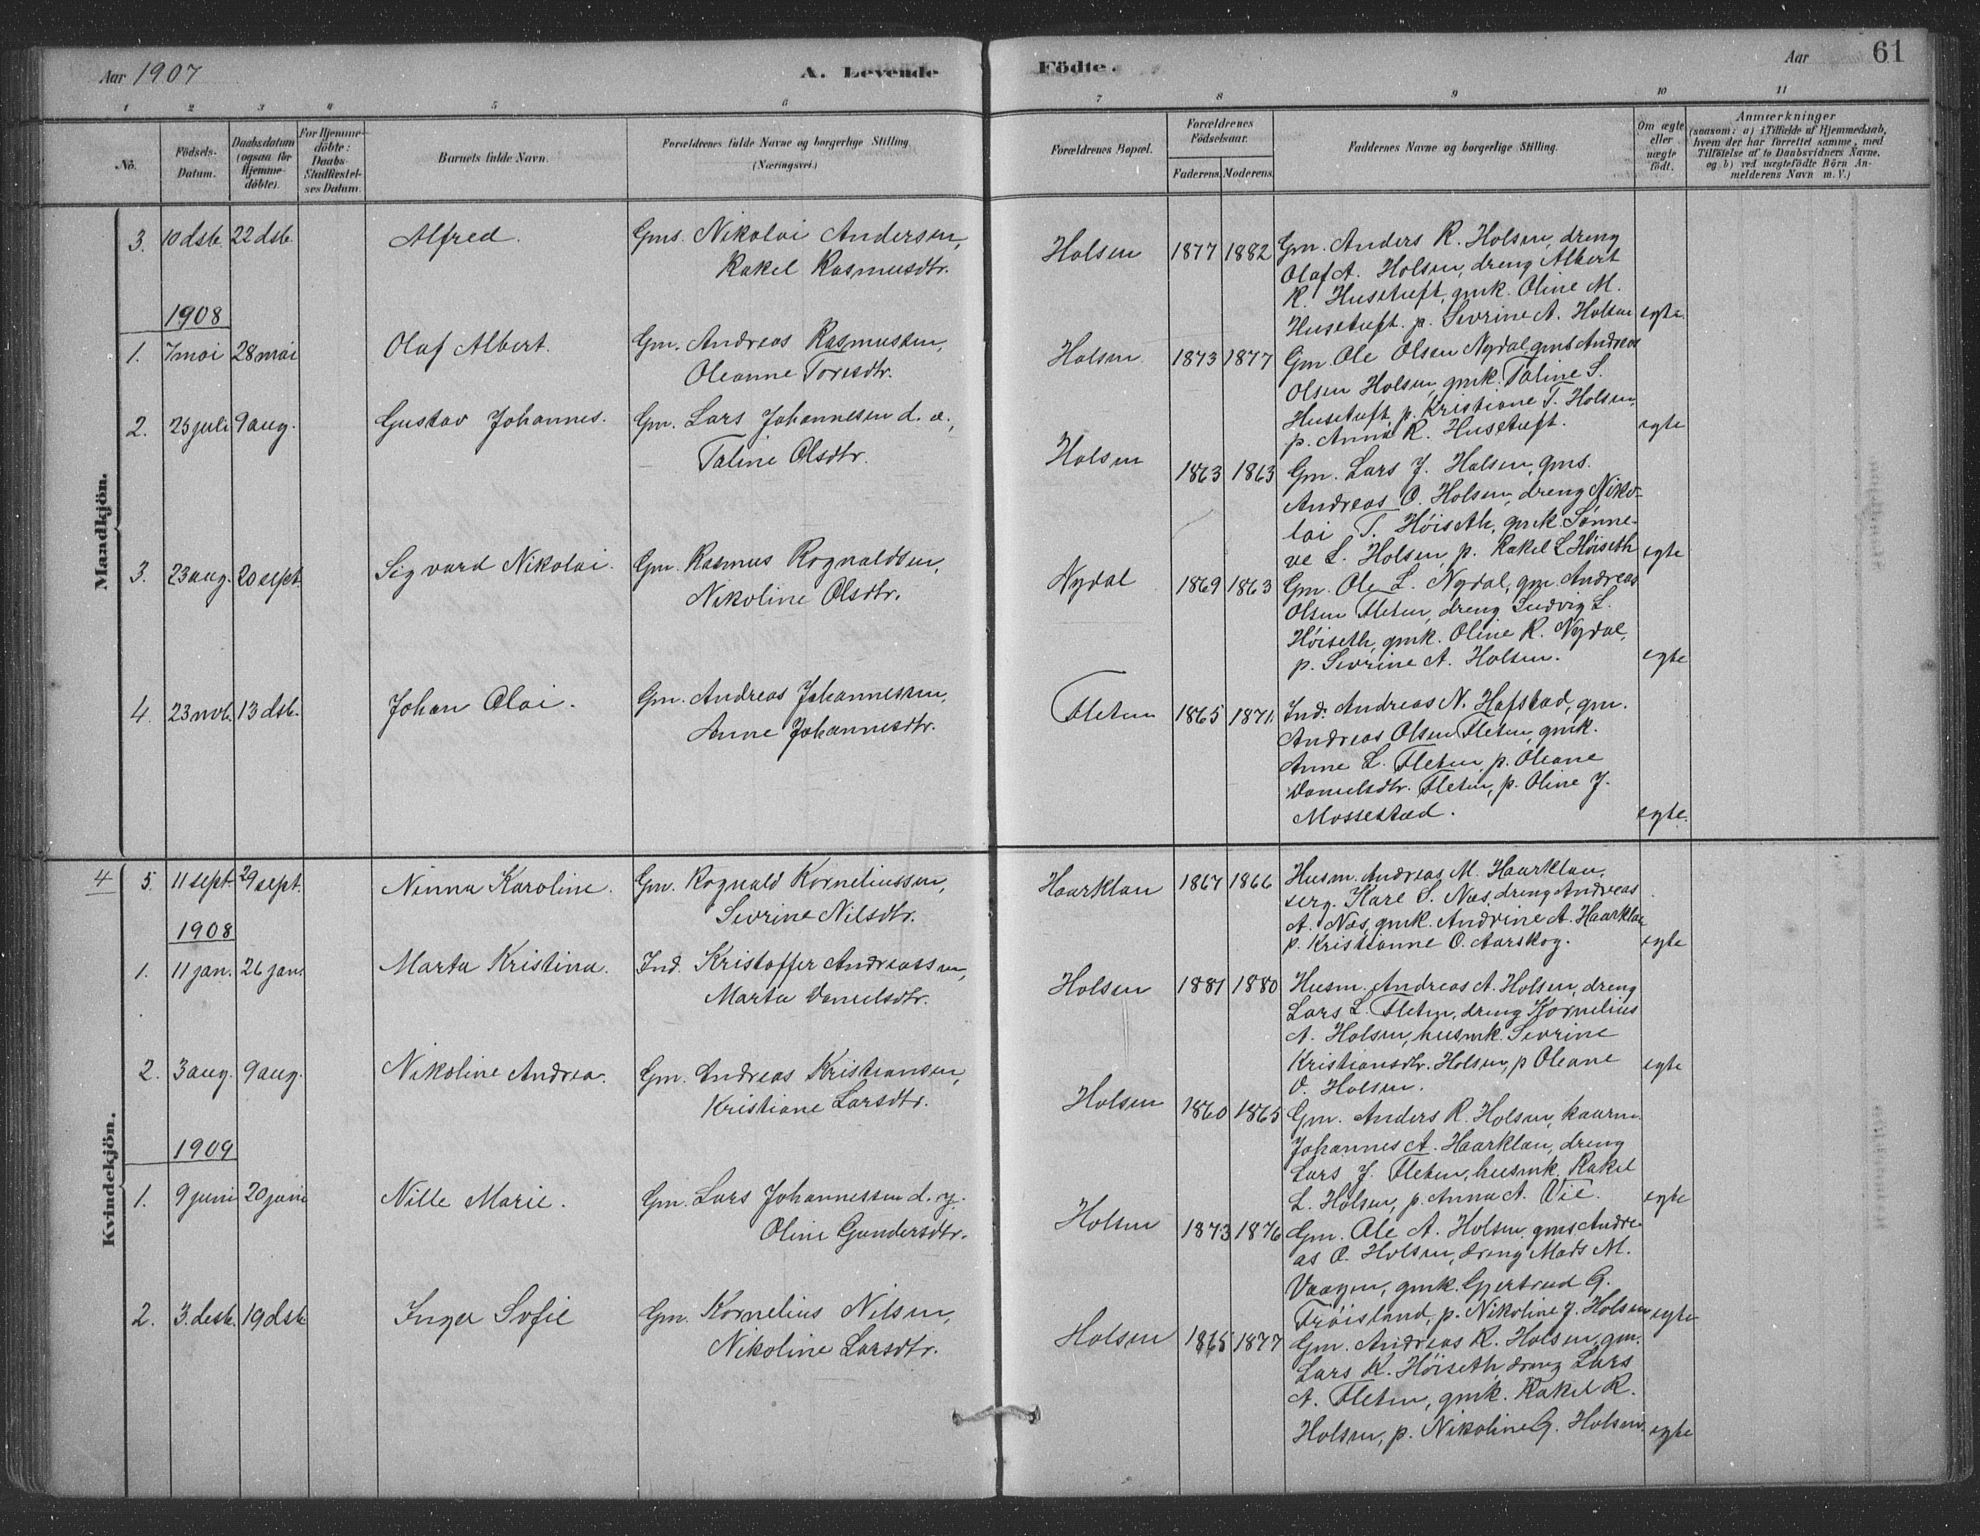 Aar 1907 A. Levende Födte. Aar 61
1 2 3 4 5 6 7 8 9 10 11
No. Födsels-Datum. Daabsdatum (ogsaa for Hjemmedöbte). For Hjemmedöbte: Daabs-Stadfæstelses Datum. Barnets fulde Navn. Forældrenes fulde Navne og borgerlige Stilling (Næringsvei.) Forældrenes Bopæl. Forældrenes Födselsaar. Faderens. Moderens. Faddernes Navne og borgerlige Stilling. Om ægte eller uægte födt. Anmærkninger (saasom: a) i Tilfælde af Hjemmedaab, hvem der har forrettet samme, med Tilföielse af to Daabsvidners Navne, og b) ved uægtefödte Börn Anmelderens Navn m. V.)
Mandkjön.
3. 10 dsb. 22 dsb. Alfred. Gms. Nikolai Andersen, Holsen 1877 1882 Gm. Anders R. Holsen, dreng
Rakel Rasmusdtr. Olaf A. Holsen, dreng Albert
R. Husetuft, gmk. Oline M.
1908 Husetuft. p. Sevrine A. Holsen egte.
1. 7 mai 28 mai Olaf Albert. Gm. Andreas Rasmussen, Holsen 1873 1877 Gm. Ole Olsen Nydal, gms Andreas
Oleanne Toresdtr. Olsen Holsen, gmk. Taline S.
Husetuft, p. Kristiane T. Holsen,
p. Anna R. Husetuft. egte
2. 25 juli 9 aug. Gustav Johannes. Gm. Lars Johannesen d. æ., Holsen 1863 1863 Gm. Lars J. Holsen, gms.
Taline Olsdtr. Andreas O. Holsen, dreng Niko-
lai T. Höiseth, gmk. Sønne-
ve L. Holsen, p. Rakel L Höiseth egte
3. 23 aug. 20 sept. Sigvard Nikolai. Gm. Rasmus Rognaldsen, Nydal 1869 1863 Gm. Ole L. Nydal, gm. Andreas
Nikoline Olsdtr. Olsen Fleten, dreng Ludvig L.
Höiseth, gmk. Oline R. Nydal,
p. Sevrine A. Holsen. egte
4. 23 novb. 13 dsb. Johan Olai. Gm. Andreas Johannessen, Fleten 1865 1871. Ind. Andreas N. Hafstad, gm.
Anne Johannesdtr. Andreas Olsen Fleten, gmk.
Anne L. Fleten, p. Oleane
Danielsdtr. Fleten, p. Oline J.
Mossestad. egte.
Kvindekjön.
4 5. 11 sept. 29 sept. Ninna Karoline. Gm. Rognald Korneliussen, Haarklau 1867 1866 Husm. Andreas M. Haarklau,
Sevrine Nilsdtr. serg. Kare S. Næs, dreng Andreas
A. Næs, gmk. Andrine A. Haarklau
1908 p. Kristianne O. Aarskog. egte
1. 11 jan. 26 jan. Marta Kristina. Ind. Kristoffer Andreassen, Holsen 1881 1880 Husm. Andreas A. Holsen, dreng
Marta Danielsdtr. Lars L. Fleten, dreng Kornelius
A. Holsen, husmk. Sevrine
Kristiansdtr. Holsen, p Oleane egte
O. Holsen.
2. 3 aug. 9 aug. Nikoline Andrea. Gm. Andreas Kristiansen, Holsen 1860 1865 Gm. Anders R. Holsen, kaarm.
Kristiane Larsdtr. Johannes A. Haarklau, dreng
Lars J. Fleten, husmk. Rakel
1909 L. Holsen, p. Anna A. Vie. egte
1. 9 juni 20 juni Nille Marie. Gm. Lars Johannessen d. y. Holsen 1873 1876 Gm. Ole A. Holsen, gms Andre-
Oline Gundersdtr. as O. Holsen, dreng Mads M.
Vaagen, gmk. Gjertrud G.
Fröisland, p. Nikoline J. Holsen egte
2. 3. desb. 19 dsb Inger Sofie Gm. Kornelius Nilsen, Holsen 1865 1877 Gm. Andreas R. Holsen, gm.
Nikoline Larsdtr. Lars K. Höiseth, dreng Lars
A. Fleten, gmk. Rakel R.
Holsen, p. Nikoline G. Holsen. egte